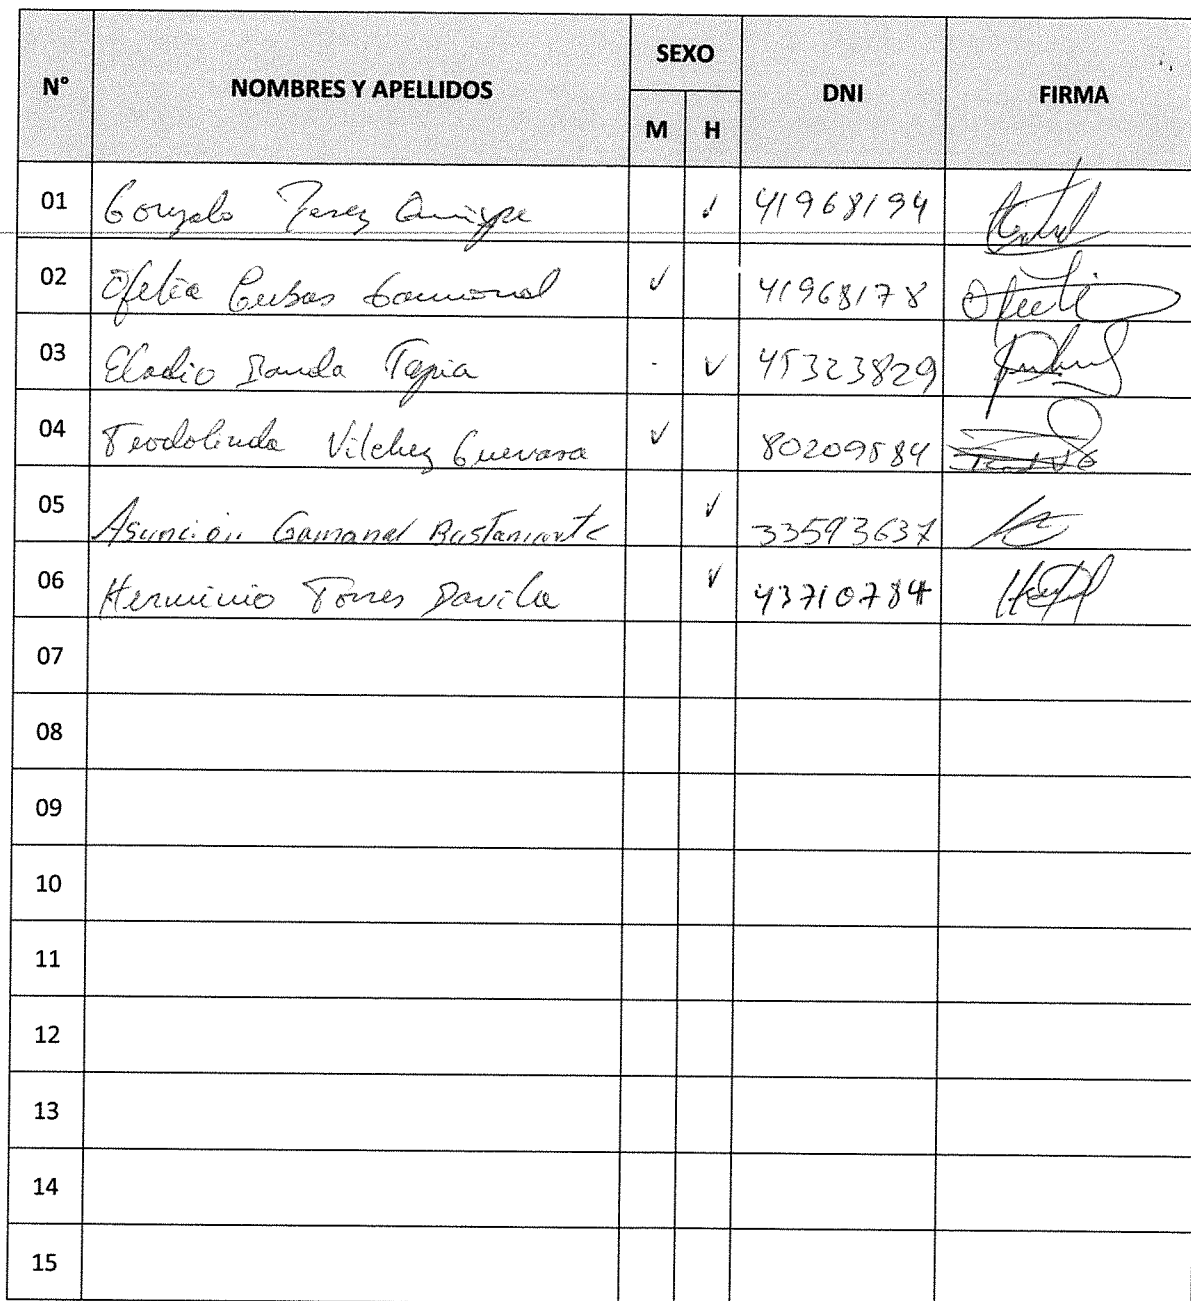 SEXO
N° NOMBRES Y APELLIDOS DNI FIRMA
M H
01 Gonzalo Perez Quispe ✓ 41968194
02 Ofelia Cubas Gamonal ✓ 41968178 Ofeli
03 Eladio Banda Tapia - ✓ 45323829
04 Teodolinda Vilchez Guevara ✓ 80209584
05 Asunción Gamonal Bustamante ✓ 33593637
06 Herminio Torres Davila ✓ 43710784
07
08
09
10
11
12
13
14
15